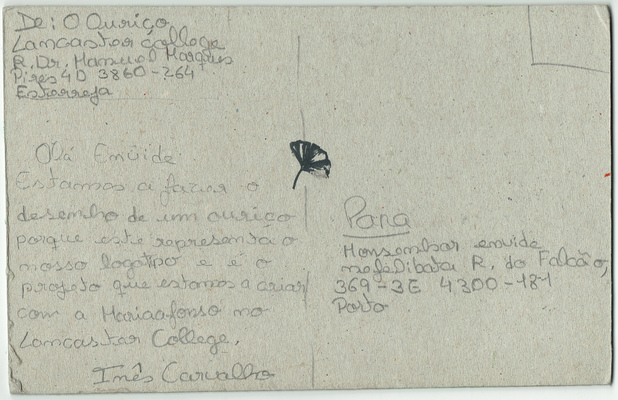 De: O Ouriço
Lancaster College
R. Dr. Manuel Marques
Pires 4D 3860-264
Estarreja
Olá Enviide
Estamos a fazer o
desenho de um ouriço
porque este representa o
nosso logotipo e é o
projeto que estamos a criar
com a Mariaafonso no
Lancaster College.
Inês Carvalho
Para
Monsenhor enviide
nefelibata R. do Falcão,
369-3E 4300-181
Porto